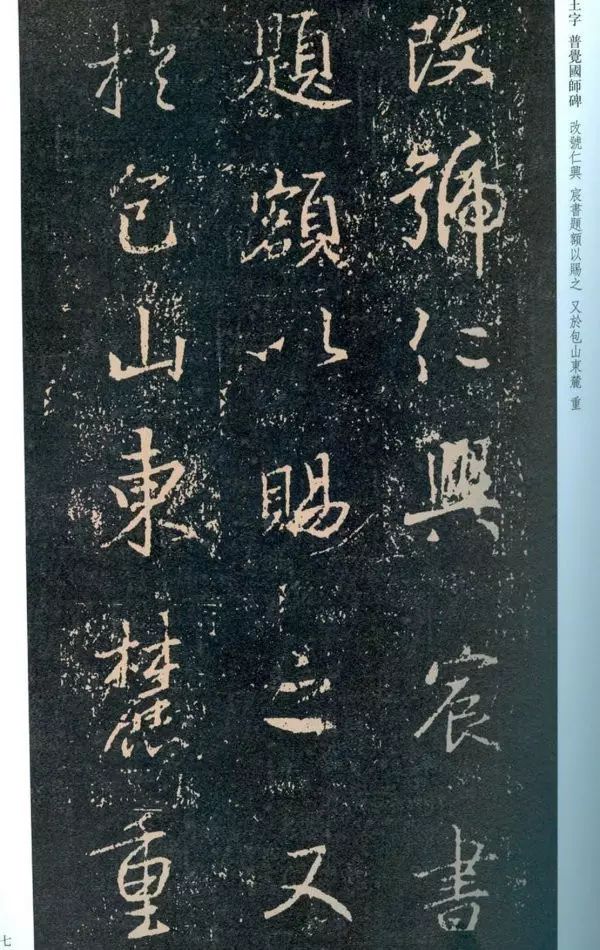 王字 普覺國師碑 改號仁興 宸書題額以賜之 又於包山東麓 重
改號仁興宸書
題額以賜之又
於包山東麓重
七